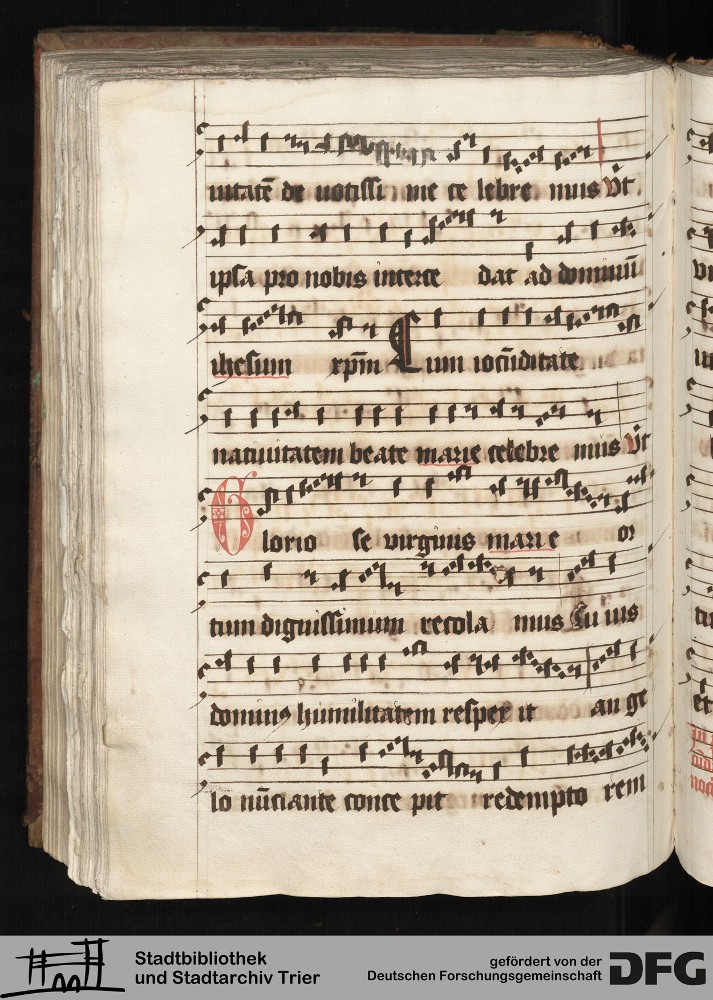 uitatē de uotissi me ce lebre mus Vt
ipsa pro nobis interce dat ad dominū
ihesum xp̄m Cum iocūditate
natiuitatem beate marie celebre mus Vt
Glorio se virginis marie or
tum dignissimum recola mus Cu ius
dominus humilitatem respex it an ge
lo nūciante conce pit redempto rem
Stadtbibliothek
und Stadtarchiv Trier
gefördert von der
Deutschen Forschungsgemeinschaft
DFG